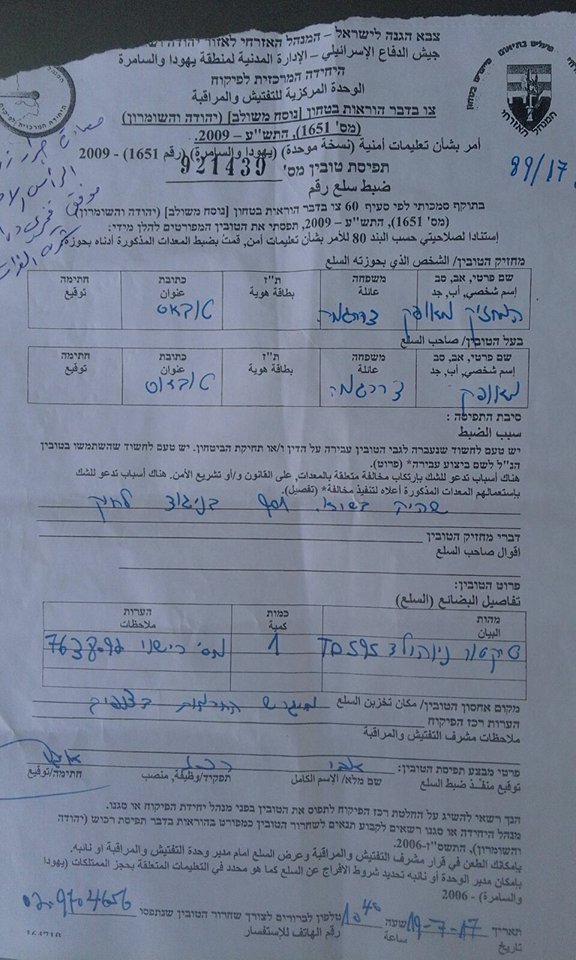 צבא הגנה לישראל – המנהל האזרחי לאזור יהודה
جيش الدفاع الإسرائيلي – الإدارة المدنية لمنطقة يهودا والسامرة
היחידה המרכזית לפיקוח
الوحدة المركزية للتفتيش والمراقبة
צו בדבר הוראות בטחון [נוסח משולב] (יהודה והשומרון)
(מס' 1651), התש"ע – 2009.
أمر بشأن تعليمات أمنية (نسخة موحدة) (يهودا والسامرة) (رقم 1651) - 2009
89/17
תפיסת טובין מס' 921439
ضبط سلع رقم
בתוקף סמכותי לפי סעיף 60 צו בדבר הוראות בטחון [נוסח משולב] (יהודה והשומרון)
(מס' 1651), התש"ע – 2009, תפסתי את הטובין המפורטים להלן מידי:
إستنادا لصلاحيتي حسب البند 80 للأمر بشأن تعليمات أمن, قمت بضبط المعدات المذكورة أدناه بحوزة
מחזיק הטובין/ الشخص الذي بحوزته السلع
שם פרטי, אב, סב משפחה ת"ז כתובת חתימה
إسم شخصي, أب, جد عائلة بطاقة هوية عنوان توقيع
המחזיק מאופק טובאס
בעל הטובין/ صاحب السلع
שם פרטי, אב, סב משפחה ת"ז כתובת חתימה
إسم شخصي, أب, جد عائلة بطاقة هوية عنوان توقيع
מאופק טובאס
סיבת התפיסה:
سبب الضبط
יש טעם לחשוד שנעברה לגבי הטובין עבירה על הדין ו/או תחיקת הביטחון. יש טעם לחשוד שהשתמשו בטובין
הנ"ל לשם ביצוע עבירה* (פרוט).
هناك أسباب تدعو للشك بإرتكاب مخالفة متعلقة بالمعدات, على القانون و/أو تشريع الأمن. هناك أسباب تدعو للشك
بإستعمالهم المعدات المذكورة أعلاه لتنفيذ مخالفة* (تفصيل).
בניגוד לחוק
דברי מחזיק הטובין
اقوال صاحب السلع
פרוט הטובין:
تفاصيل البضائع (السلع)
מהות כמות הערות
البيان كمية ملاحظات
TD595 1 מס' רישוי
מקום אחסון הטובין/ مكان تخزين السلع
הערות רכז הפיקוח
ملاحظات مشرف التفتيش والمراقبة
פרטי מבצע תפיסת הטובין:
توقيع منفّذ ضبط السلع שם מלא/ الإسم الكامل תפקיד/وظيفة, منصب חתימה/توقيع
הנך רשאי להשיג על החלטת רכז הפיקוח לתפוס את הטובין בפני מנהל יחידת הפיקוח או סגנו.
מנהל היחידה או סגנו רשאים לקבוע תנאים לשחרור הטובין כמפורט בהוראות בדבר תפיסת רכוש (יהודה
והשומרון), התשס"ז-2006.
بإمكانك الطعن في قرار مشرف التفتيش والمراقبة وعرض السلع امام مدير وحدة التفتيش والمراقبة او نائبه.
بإمكان مدير الوحدة أو نائبه تحديد شروط الافراج عن السلع كما هو محدد في التعليمات المتعلقة بحجز الممتلكات (يهودا
والسامرة) - 2006
תאריך 19-7-17 שעה 10 40 טלפון לבירורים לצורך שחרור הטובין שנתפסו 02-9704656
تاريخ ساعة رقم الهاتف للإستفسار